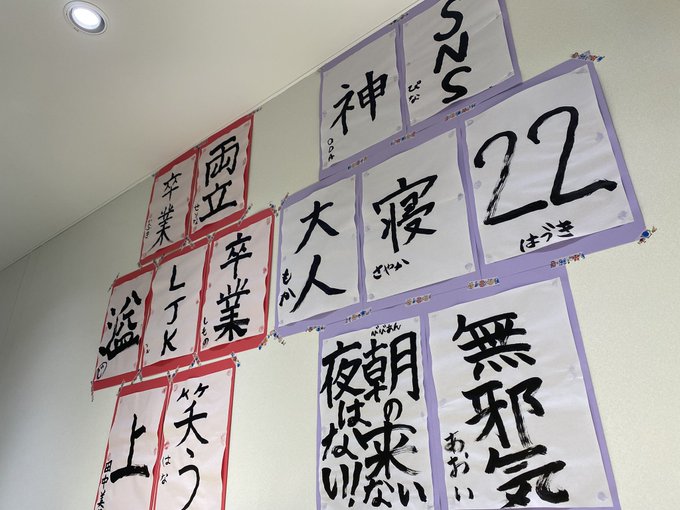 両立
卒業
卒業
しもの
LJK
溢
笑う
はな
上
田中美
SNS
ぴな
神
ODA
22
はづき
寝
さやか
大人
もか
無邪気
あおい
朝の来ない
夜はない!!